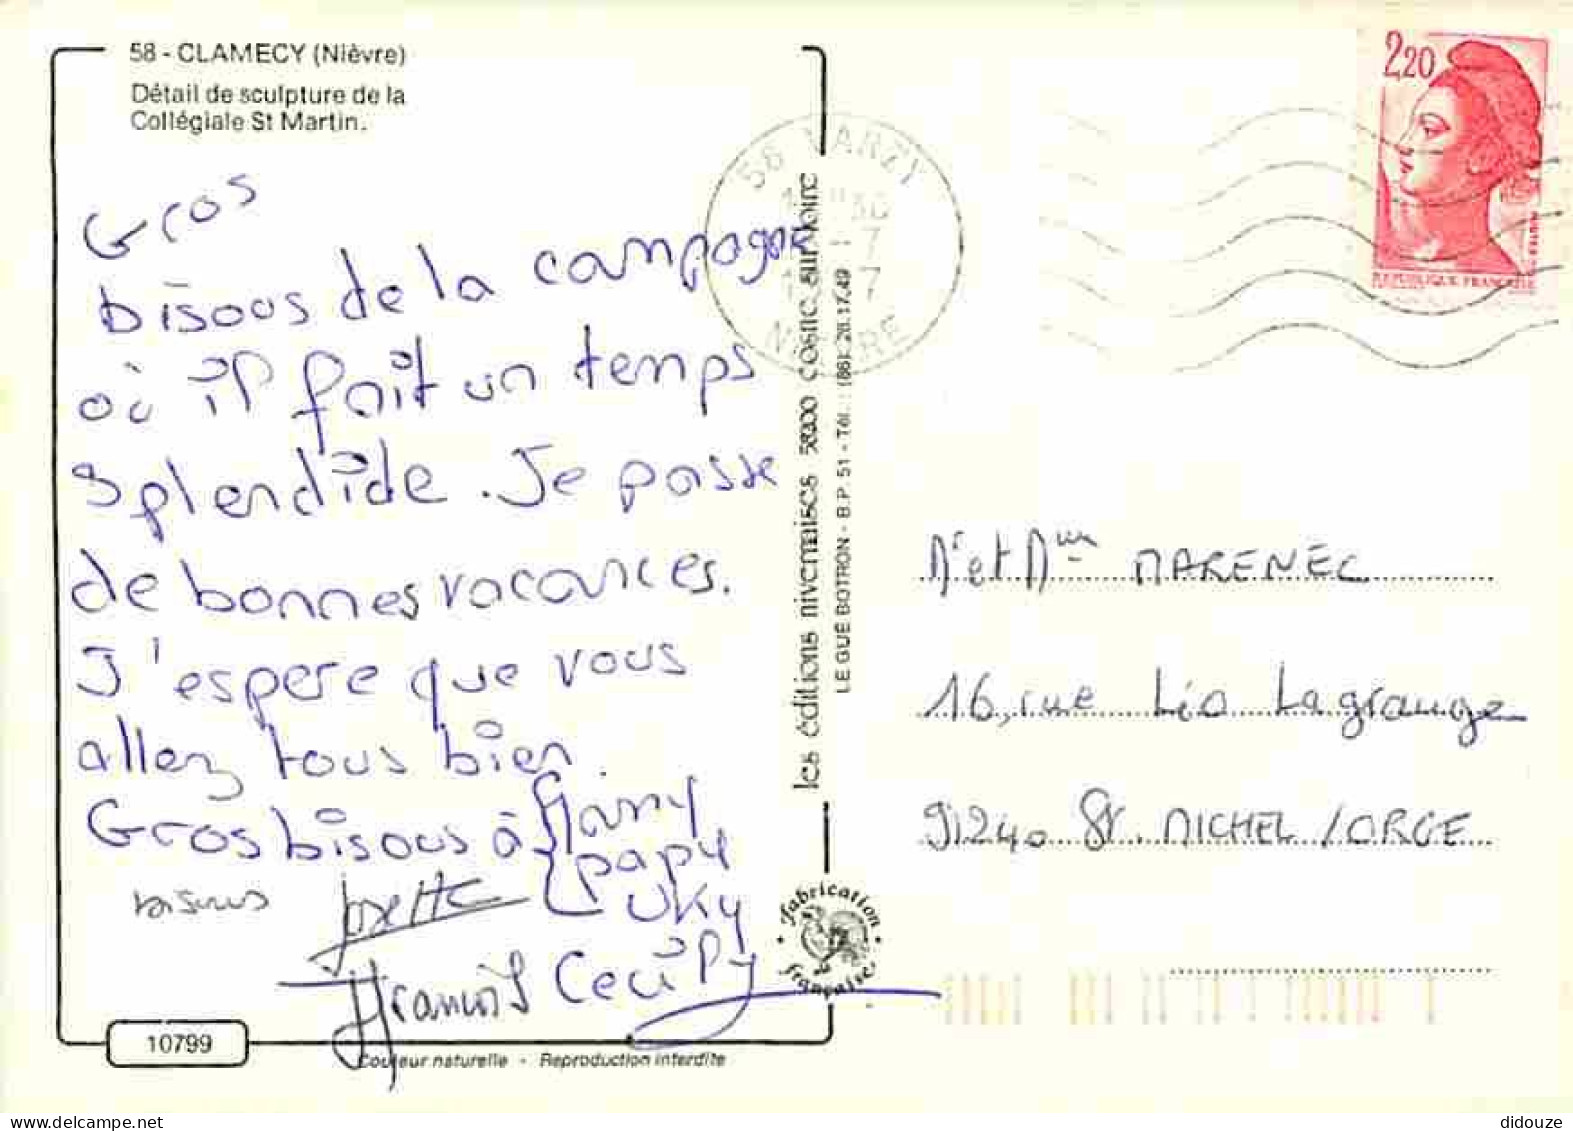 58 - CLAMECY (Nièvre)
Détail de sculpture de la
Collégiale St Martin.
Gros
bisous de la campagne
où il fait un temps
splendide. Je passe
de bonnes vacances.
J'espere que vous
allez tous bien.
Gros bisous à
papy
bisous Josette
Francois Cecily
10799
Couleur naturelle - Reproduction interdite
les éditions nivernaises 58200 cosne sur loire
LE GUÉ BOTRON - B.P. 51 - Tél.: (86) 28.17.49
fabrication française
58 VARZY
NIEVRE
2,20
REPUBLIQUE FRANÇAISE
Mr et Mme MARENEC
16, rue Léo Lagrange
91240 St. MICHEL/ORGE
didouze